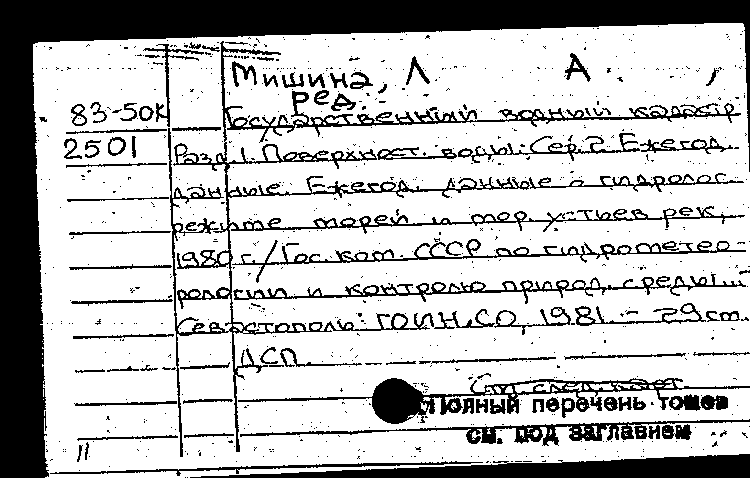 Мишина, Л А.,
ред.
83-50К Государственный водный кадастр
2501 Разд. 1. Поверхност. воды: Сер. 2. Ежегод.
данные. Ежегод. данные о гидролог.
режиме морей и мор. устьев рек,
1980 г./Гос. ком. СССР по гидрометео-
рологии и контролю природ. среды...
Севастополь: ГОИН.СО, 1981. - 29 см.
ДСП.
См. след. карт.
Полный перечень томов
см. под заглавием
11